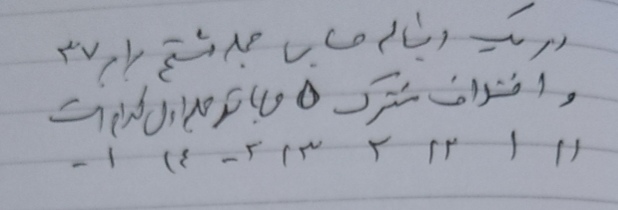 در یک دنباله حسابی جمله هشتم برابر ۳۷
و اختلاف مشترک ۵ میباشد جمله اول کدام است
۱۱ ۱ ۱۲ ۲ ۱۳ ۲- ۱۴ ۱-